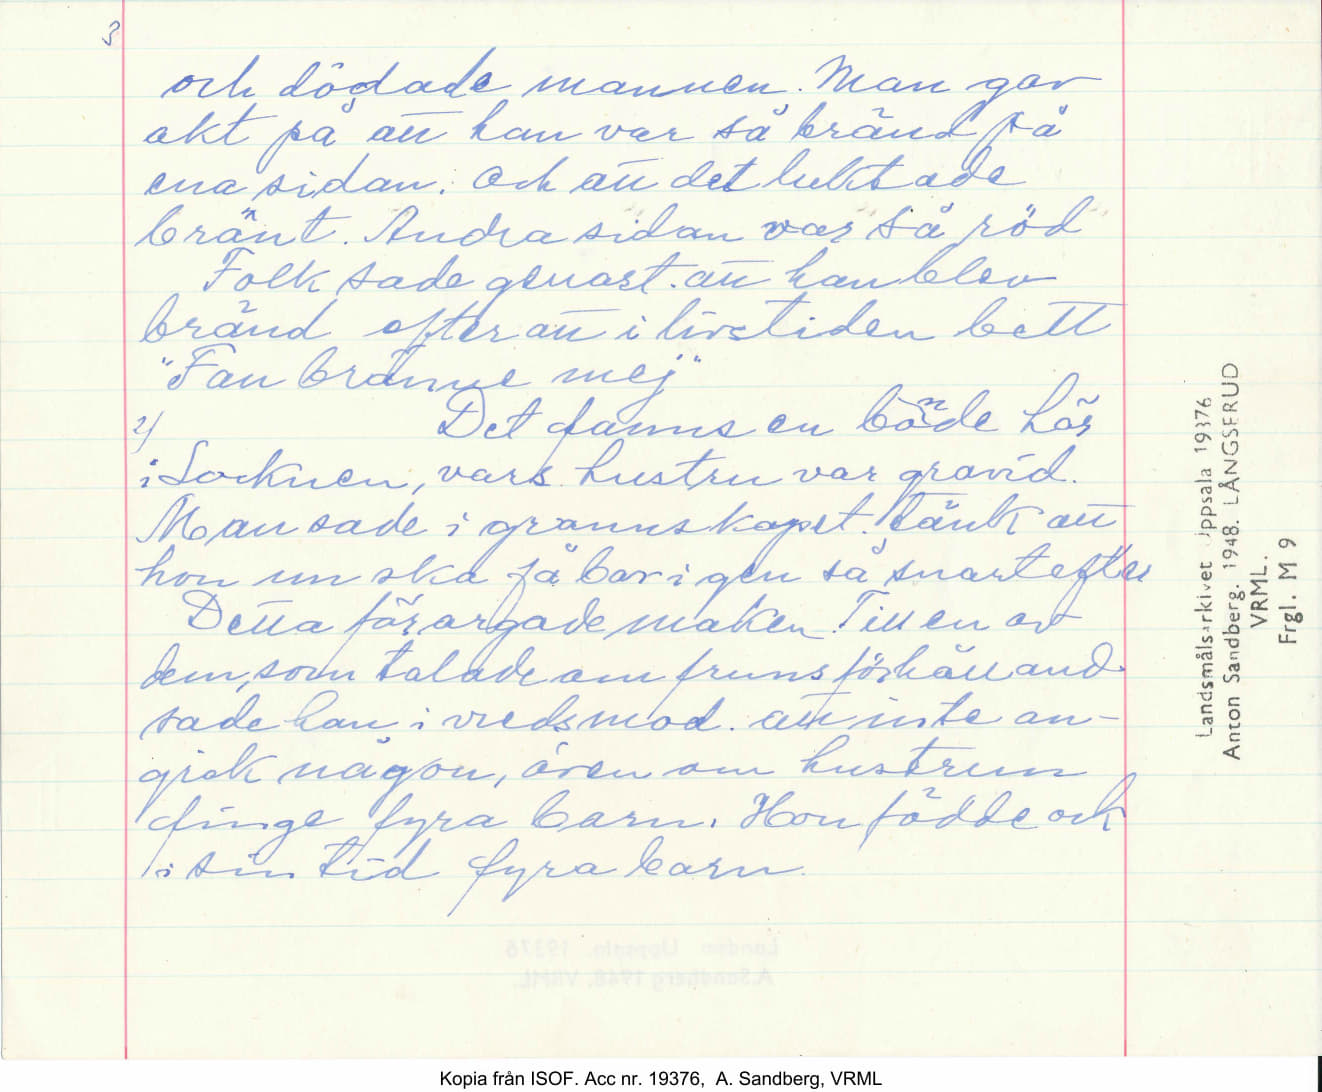 3
och dödade mannen. Man gav
akt på att han var så bränd på
ena sidan. Och att det luktade
bränt. Andra sidan var så röd
Folk sade genast. att han blev
bränd efter att i livstiden bett
"Fan bränne mej"
2/ Det fanns en bonde här
i Socknen, vars hustru var gravid.
Man sade i grannskapet. tänk att
hon nu ska få barn igen så snart efter
Detta förargade maken. Till en av
dem, som talade om fruns förhålland
sade han i vredsmod. att inte an-
gick någon, även om hustrun
finge fyra barn. Hon födde ock
i sin tid fyra barn.
Landsmålsarkivet Uppsala 19376
Anton Sandberg. 1948. LÅNGSERUD
VRML.
Frgl. M 9
Kopia från ISOF. Acc nr. 19376, A. Sandberg, VRML